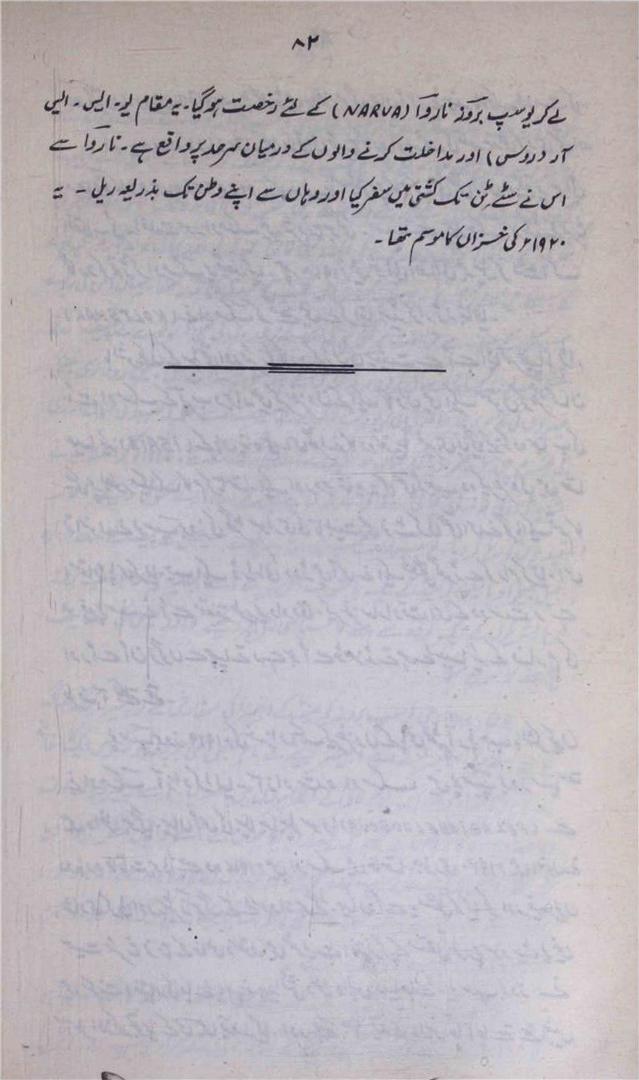 ۸۲
لے کر یوسپ بروز ناروا (NARVA) کے لئے رخصت ہوگیا۔ یہ مقام یو۔ ایس۔ ایس
آر (روس) اور مداخلت کرنے والوں کے درمیان سرحد پر واقع ہے۔ ناروا سے
اس نے سٹے ٹن تک کشتی میں سفر کیا اور وہاں سے اپنے وطن تک بذریعہ ریل ۔ یہ
۱۹۲۰ء کی خزاں کا موسم تھا ۔